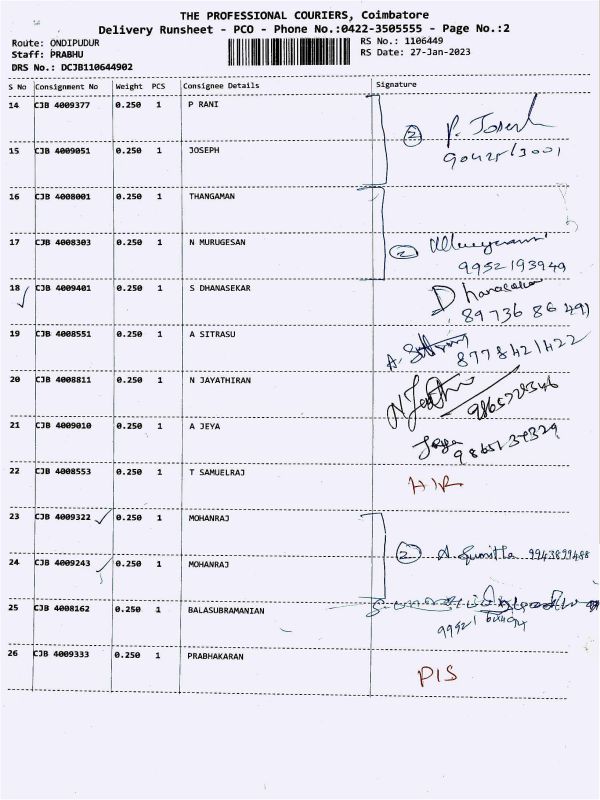 THE PROFESSIONAL COURIERS, Coimbatore
Delivery Runsheet - PCO - Phone No.:0422-3505555 - Page No.:2
Route: ONDIPUDUR RS No.: 1106449
Staff: PRABHU RS Date: 27-Jan-2023
DRS No.: DCJB110644902
S No Consignment No Weight PCS Consignee Details Signature
14 CJB 4009377 0.250 1 P RANI
2 P. Joseph
15 CJB 4009051 0.250 1 JOSEPH
16 CJB 4008001 0.250 1 THANGAMAN
17 CJB 4008303 0.250 1 N MURUGESAN
2
9952193949
18 CJB 4009401 0.250 1 S DHANASEKAR Dhanasekar
89736 86491
19 CJB 4008551 0.250 1 A SITRASU
8778421422
20 CJB 4008811 0.250 1 N JAYATHIRAN
21 CJB 4009010 0.250 1 A JEYA
22 CJB 4008553 0.250 1 T SAMUELRAJ
H/R
23 CJB 4009322 0.250 1 MOHANRAJ
2 9943899488
24 CJB 4009243 0.250 1 MOHANRAJ
25 CJB 4008162 0.250 1 BALASUBRAMANIAN
26 CJB 4009333 0.250 1 PRABHAKARAN
PIS